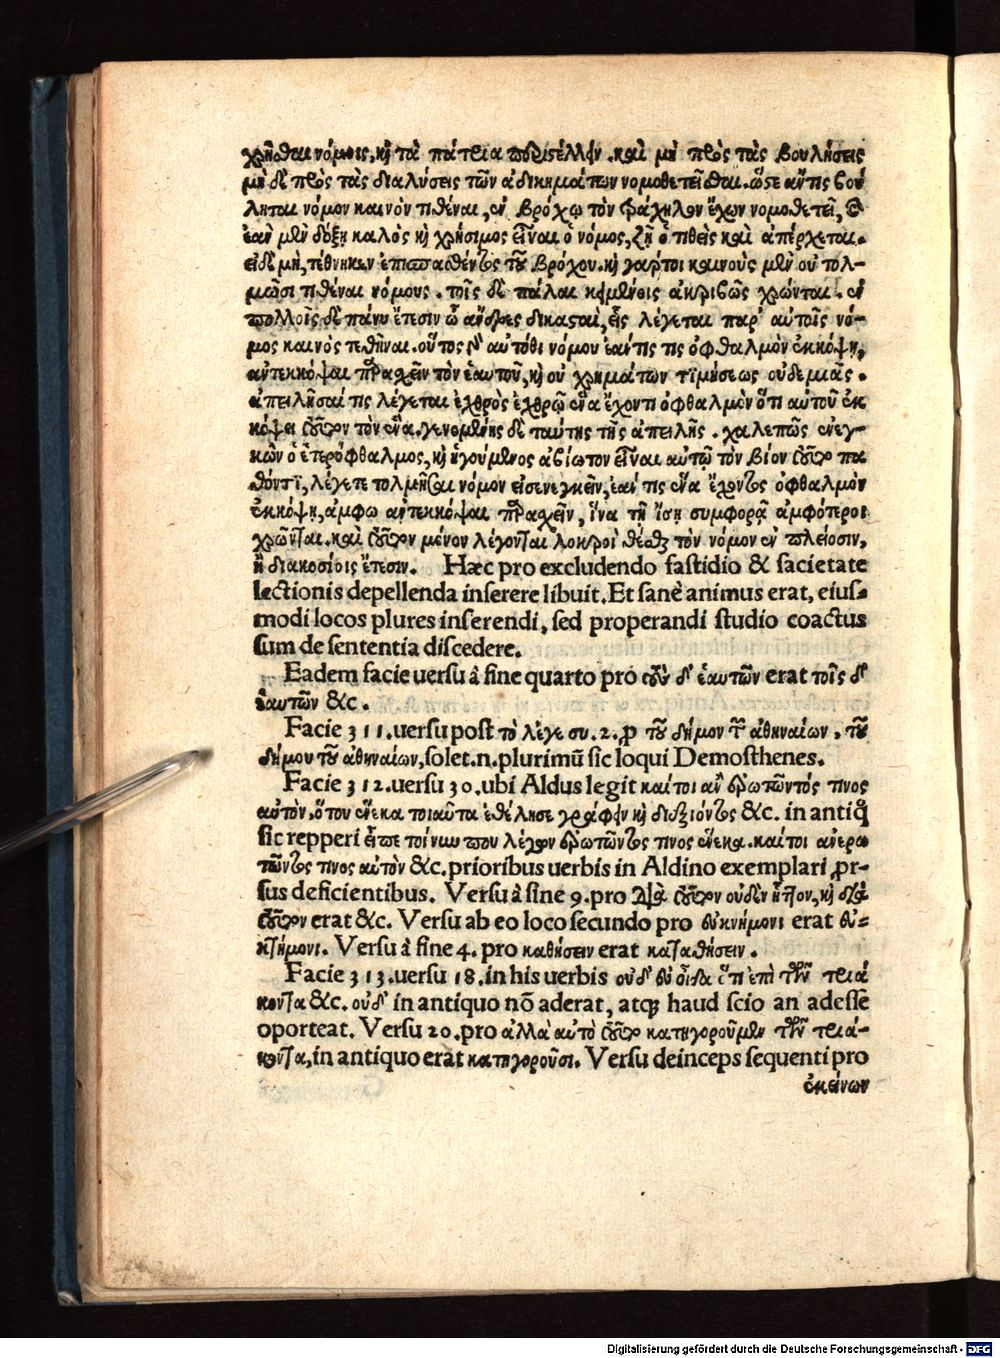 χρῆσθαι νόμοις, καὶ τὰ πάτρια περιστέλλειν. καὶ μὴ πρὸς τὰς βουλήσεις
μὴ δὲ πρὸς τὰς διαλύσεις τῶν ἀδικημάτων νομοθετεῖσθαι. ὥστε ἄν τις βού
ληται νόμον καινὸν τιθέναι, ἐν βρόχῳ τὸν τράχηλον ἔχων νομοθετεῖ, καὶ
ἐαν μὲν δόξῃ καλὸς καὶ χρήσιμος εἶναι ὁ νόμος, ζῇ ὁ τιθεὶς καὶ ἀπέρχεται.
εἰ δὲ μὴ, τέθνηκεν ἐπισπασθέντος τοῦ βρόχου. καὶ γάρ τοι καινοὺς μὲν οὐ τολ-
μῶσι τιθέναι νόμους. τοῖς δὲ πάλαι κειμένοις ἀκριβῶς χρῶνται. ἐν
πολλοῖς δὲ πάνυ ἔτεσιν ὦ ἄνδρες δικασταὶ, εἷς λέγεται παρ' αὐτοῖς νό-
μος καινὸς τεθῆναι. ὄντος γὰρ αὐτόθι νόμου ἐάν τις τις ὀφθαλμὸν ἐκκόψῃ,
ἀντεκκόψαι παρασχεῖν τὸν ἑαυτοῦ, καὶ οὐ χρημάτων τϊμήσεως οὐδεμιᾶς.
ἀπειλῆσαί τις λέγεται ἐχθρὸς ἐχθρῷ ἕνα ἔχοντι ὀφθαλμὸν ὅτι αὐτοῦ ἐκ
κόψει τοῦτον τὸν ἕνα. γενομένης δὲ ταύτης τῆς ἀπειλῆς. χαλεπῶς ἐνεγ-
κὼν ὁ ἑτερόφθαλμος, καὶ ἡγούμενος ἀβίωτον εἶναι αὐτῷ τὸν βίον τοῦτο πα
θόντϊ, λέγεται τολμῆσαι νόμον εἰσενεγκεῖν, ἐάν τις ἕνα ἔχοντος ὀφθαλμὸν
ἐκκόψῃ, ἄμφω ἀντεκκόψαι παρασχεῖν, ἵνα τῇ ἴσῃ συμφορᾷ ἀμφότεροι
χρῶνται. καὶ τοῦτον μόνον λέγονται λοκροὶ θέσθαι τὸν νόμον ἐν πλείοσιν,
ἢ διακοσίοις ἔτεσιν. Hæc pro excludendo fastidio & sacietate
lectionis depellenda inserere libuit. Et sanè animus erat, eius-
modi locos plures inserendi, sed properandi studio coactus
sum de sententia discedere.
Eadem facie uersu â fine quarto pro τοὺς δ' ἑαυτῶν erat τοῖς δ'
ἑαυτῶν &c.
Facie 311. uersu post τὸ λέγε συ. 2. ꝓ τοῦ δήμον τῶν ἀθηναίων, τοῦ
δήμου τοῦ ἀθηναίων, solet .n. plurimū sic loqui Demosthenes.
Facie 312. uersu 30. ubi Aldus legit καίτοι ἂν ἐρωτῶντός τινος
αὐτὸν. ὅτου ἕνεκα τοιαῦτα ἐθέλησε γράφειν καὶ διεξιόντος &c. in antiq̄
sic repperi εἶπε τοίνυν που λέγων ἐρωτῶντος τινος ἕνεκα. καίτοι ἀνερω
τῶντος τινος αὐτὸν &c. prioribus uerbis in Aldino exemplari ꝓr-
sus deficientibus. Versu â fine 9. pro διὰ τοῦτον οὐδὲν ἧττον, καὶ διὰ
τοῦτον erat &c. Versu ab eo loco secundo pro εὐκνήμονι erat εὐ-
κτήμονι. Versu â fine 4. pro καθήσειν erat καταθήσειν.
Facie 313. uersu 18. in his uerbis οὐδ' εὖ οἶδα ὅτι ἐπὶ τῶν τριά
κοντα &c. οὐδ' in antiquo nō aderat, atqꝫ haud scio an adesse
oporteat. Versu 20. pro ἀλλὰ αὐτὸ τοῦτο κατηγοροῦμεν τῶν τριά-
κοντα, in antiquo erat κατηγοροῦσι. Versu deinceps sequenti pro
ἐκείνων
Digitalisierung gefördert durch die Deutsche Forschungsgemeinschaft - DFG